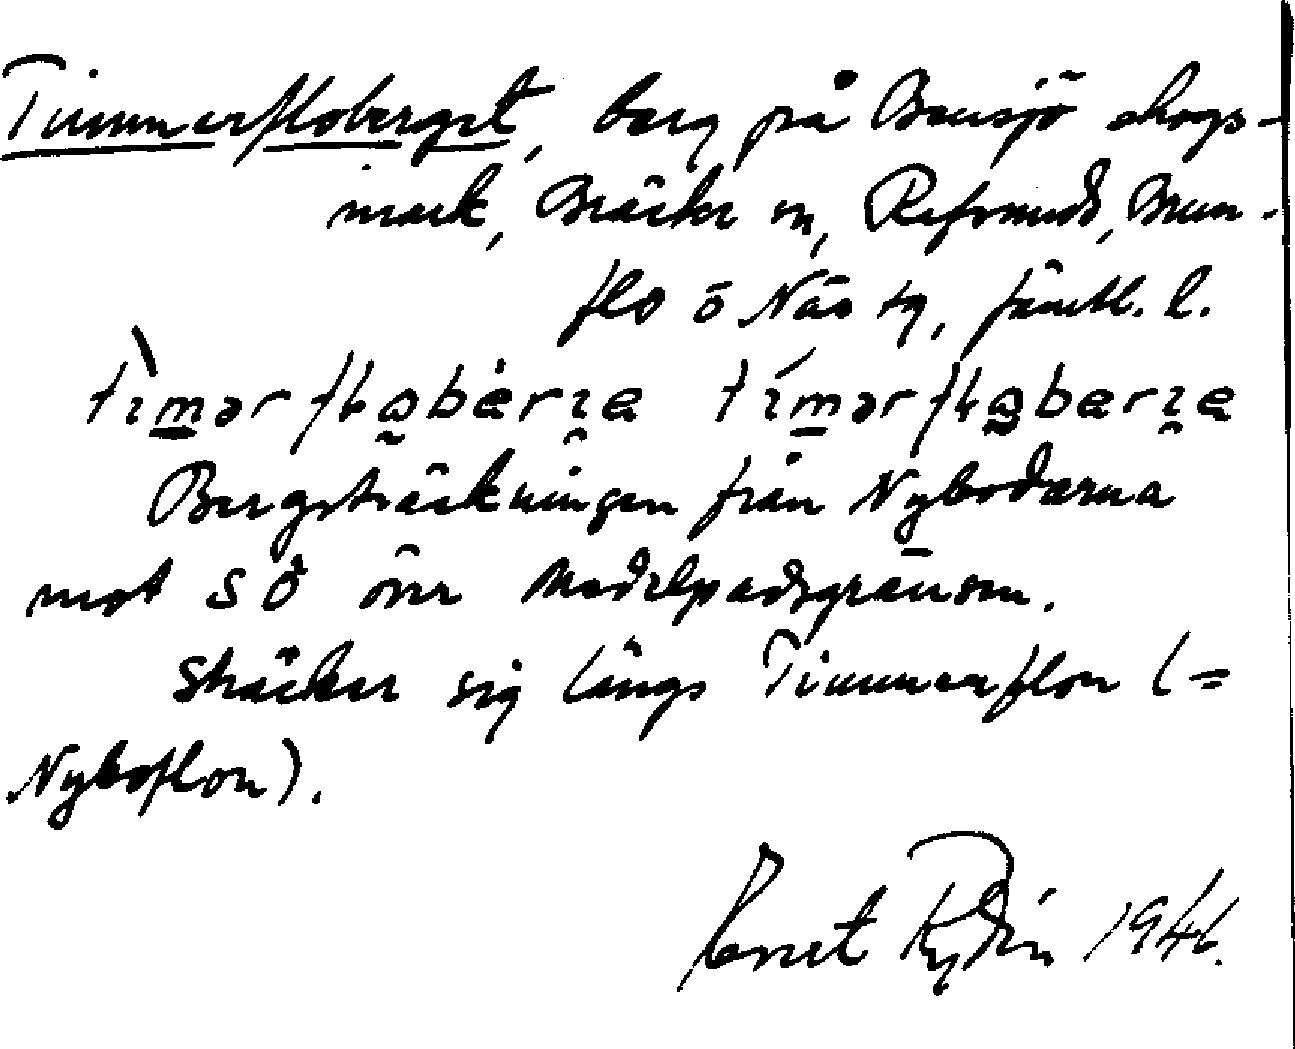 Timmerfloberget, berg på Bensjö skogs-
mark, Bräcke sn, Refsunds, Brun-
flo o Näs tg, Jämtl. l.
tìmər fɫobèrɪe tímər fɫoberɪe
Bergsträckningen från Nybodarna
mot SÖ över Medelpadsgränsen.
Sträcker sig längs Timmerflon (=
Nyboflon).
1946.